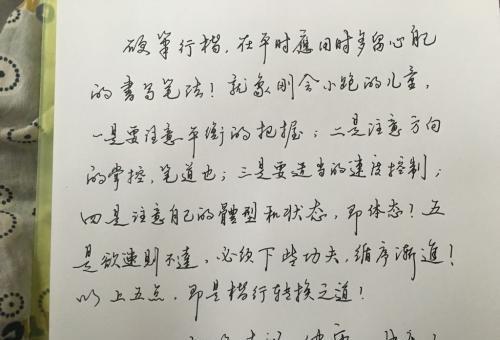 硬筆行楷，在平时應用时多留心它
的書写笔法！就象刚会小跑的儿童，
一是要注意平衡的把握；二是注意方向
的掌控，笔道也；三是要适当的速度控制；
四是注意自己的體型和状态，即体态？五
是欲速則不達，必须下些功夫，循序漸進！
以上五点，即是楷行转换之道！